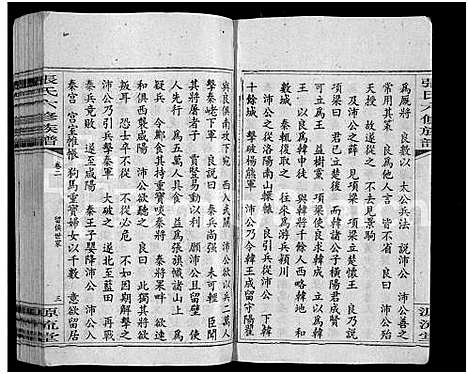 張氏六修族譜
源流堂
為厩將 良數以 太公兵法 說沛公 沛公善之
常用其策 良為他人言 皆不省 良曰 沛公殆
天授 故遂從之 不去見景駒
及沛公之薛 見項梁 項梁立楚懷王 良乃說
項梁曰 君已立楚後 而韓諸公子橫陽君成賢
可立為王 益樹黨 項梁使良求韓成 立以為韓
王 以良為韓申徒 與韓王將千餘人西略韓地 得
數城 秦輒復取之 往來為游兵潁川
沛公之從洛陽南出轘轅 良引兵從沛公 下韓
十餘城 擊破楊熊軍 沛公乃令韓王成留守陽翟
與良俱南攻下宛 西入武關 沛公欲以兵二萬人
擊秦嶢下軍 良說曰 秦兵尚強 未可輕 臣聞
其將屠者子 賈豎易動以利 願沛公且留壁 使
人先行 為五萬人具食 益為張旗幟諸山上 為
疑兵 令酈食其持重寶啗秦將 秦將果畔 欲連
和俱西襲咸陽 沛公欲聽之 良曰 此獨其將欲
叛耳 恐士卒不從 不從必危 不如因其解擊之 沛
公乃引兵擊秦軍 大破之 遂北至藍田 再戰
秦兵竟敗 遂至咸陽 秦王子嬰降沛公 沛公入
秦宮 宮室帷帳 狗馬重寶婦女以千數 意欲留居
張氏六修族譜
卷二
留侯世家
三
源流堂